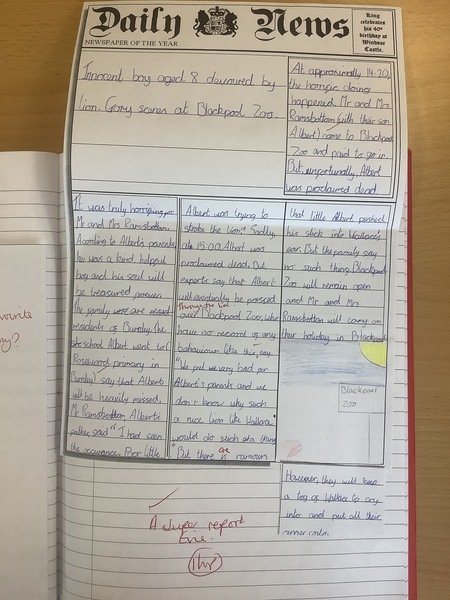 Daily News
NEWSPAPER OF THE YEAR
King
celebrates
his 40th
birthday at
Windsor
Castle.
Innocent boy aged 8 devoured by
lion. Gory scenes at Blackpool Zoo.
At approximally 14:20,
the horrific doing
happened. Mr and Mrs
Ramsbottom (with their son
Albert) came to Blackpool
Zoo and paid to go in.
But, unfortunally, Albert
was proclaimed dead
It was truly horrifying for
Mr and Mrs Ramsbottam
According to Albert's parents,
he was a kind, helpful
boy and his soul will
be treasured forever.
The family were are
residents of Burnley. The
school Albert went to (
Rosewood primary in
Burnley) say that Albert
will be heavily missed.
Mr Ramsbottom Albert's
father, said " I had seen
the occurance. Poor little
Albert was trying to
stroke the lion." Sadly,
at 15:00, Albert was
proclaimed dead. But,
experts say that Albert
will eventually be passed
through the lion
over) Blackpool Zoo, who
have no record of any
bahaviour like this, say
"We felt very bad for
Albert's parents and we
don't know why such
a nice lion like Wallace"
would do such a thing
"But there are is rumours
that little Albert pushed
his stick into Wallace's
ear. But the family say
no such thing. Blackpool
Zoo will remain open
and Mr and Mrs
Ramsbottam will carry on
their holiday in Blackpool
Blackpool
Zoo
However, they will
a toy of Wallace to any
and put all their
A super report
Evie.
1hr